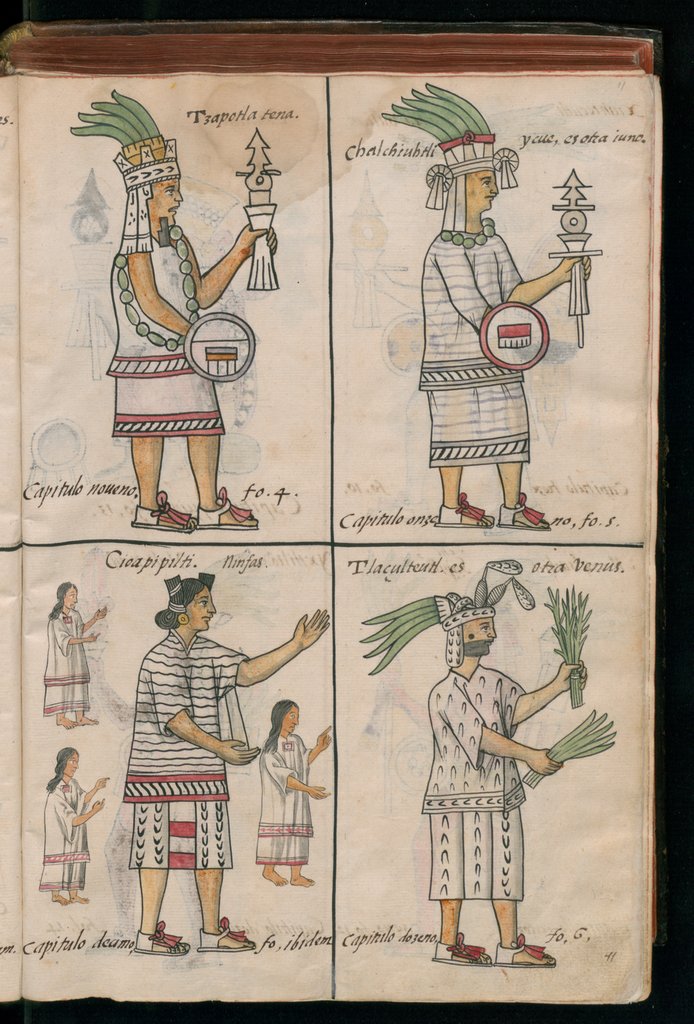 Tzapotla tena.
Capitulo noueno, fo. 4.
11
Chalchiuhtli ycue, es otra iuno.
Capitulo onzeno, fo, 5.
Cioapipilti. Ninfas.
Capitulo decimo, fo, ibidem
Tlaçulteutl. es otra venus.
Capitulo dozeno, fo, 6,